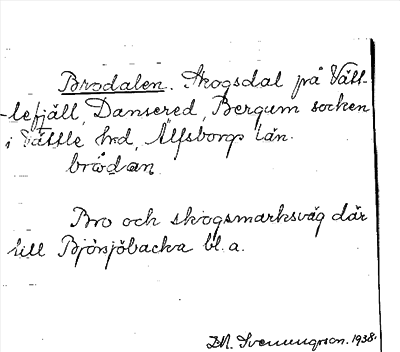 Brodalen. Skogsdal på Vätt-
lefjäll, Dansered, Bergum socken
i Vättle hrd, Älfsborgs län.
brödan
Bro och skogsmarksväg där
till Björsjöbacka bl. a.
Svenungsson. 1938.